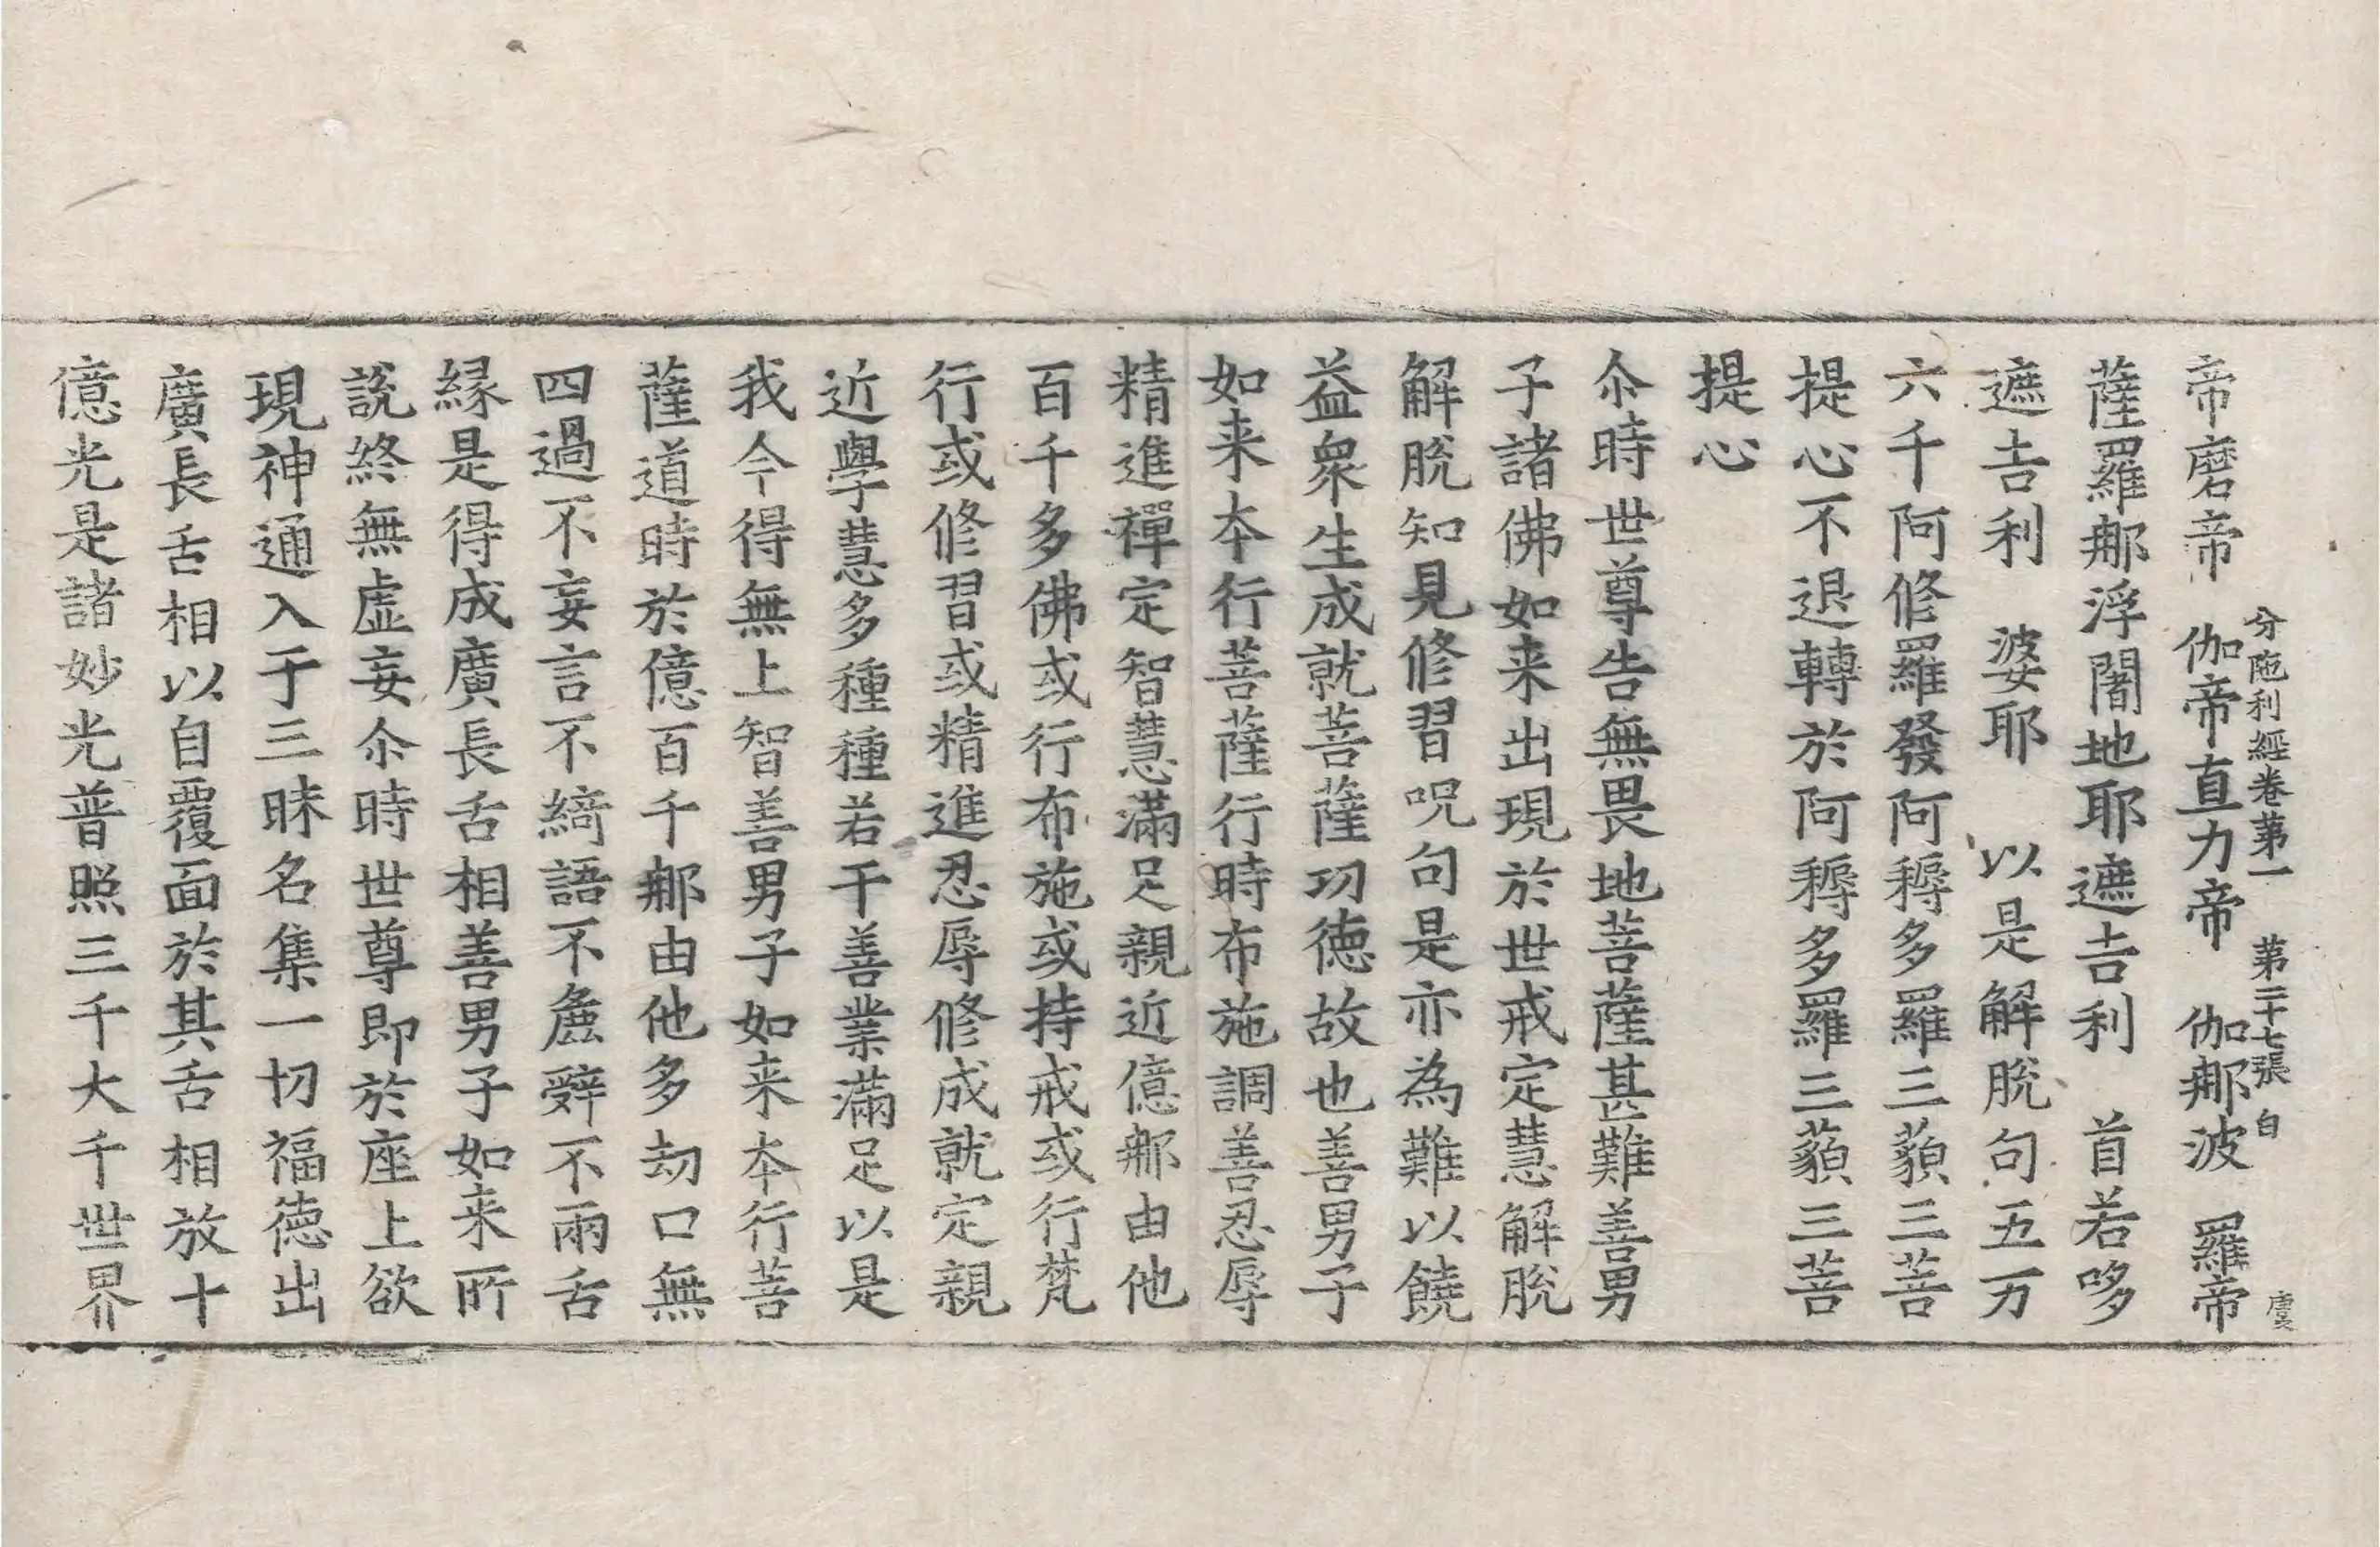 分陁利經卷第一　第二十七張　白　虞
帝磨帝　伽帝直力帝　伽𨚗波　羅帝
薩羅𨚗浮闍地耶遮吉利　首若哆
遮吉利　婆耶　以是解脫句五万
六千阿修羅發阿耨多羅三藐三菩
提心不退轉於阿耨多羅三藐三菩
提心
尒時世尊告無畏地菩薩甚難善男
子諸佛如来出現於世戒定慧解脫
解脫知見修習呪句是亦為難以饒
益衆生成就菩薩功德故也善男子
如来本行菩薩行時布施調善忍辱
精進禪定智慧滿足親近億𨚗由他
百千多佛或行布施或持戒或行梵
行或修習或精進忍辱修成就定親
近學慧多種種若干善業滿足以是
我今得無上智善男子如来本行菩
薩道時於億百千𨚗由他多劫口無
四過不妄言不綺語不麁辝不兩舌
緣是得成廣長舌相善男子如来所
説終無虛妄尒時世尊即於座上欲
現神通入于三昧名集一切福德出
廣長舌相以自覆面於其舌相放十
億光是諸妙光普照三千大千世界